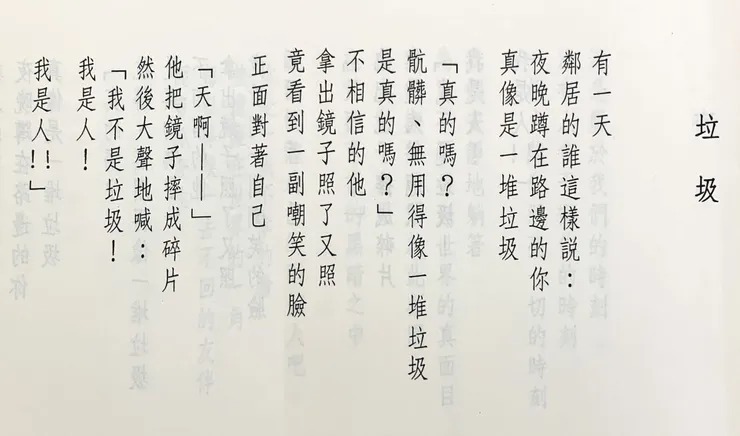 垃圾
有一天
鄰居的誰這樣說：
夜晚蹲在路邊的你
真像是一堆垃圾
「真的嗎？
骯髒、無用得像一堆垃圾
是真的嗎？」
不相信的他
拿出鏡子照了又照
竟看到一副嘲笑的臉
正面對著自己
「天啊——」
他把鏡子摔成碎片
然後大聲地喊：
「我不是垃圾！
我是人！
我是人!!」